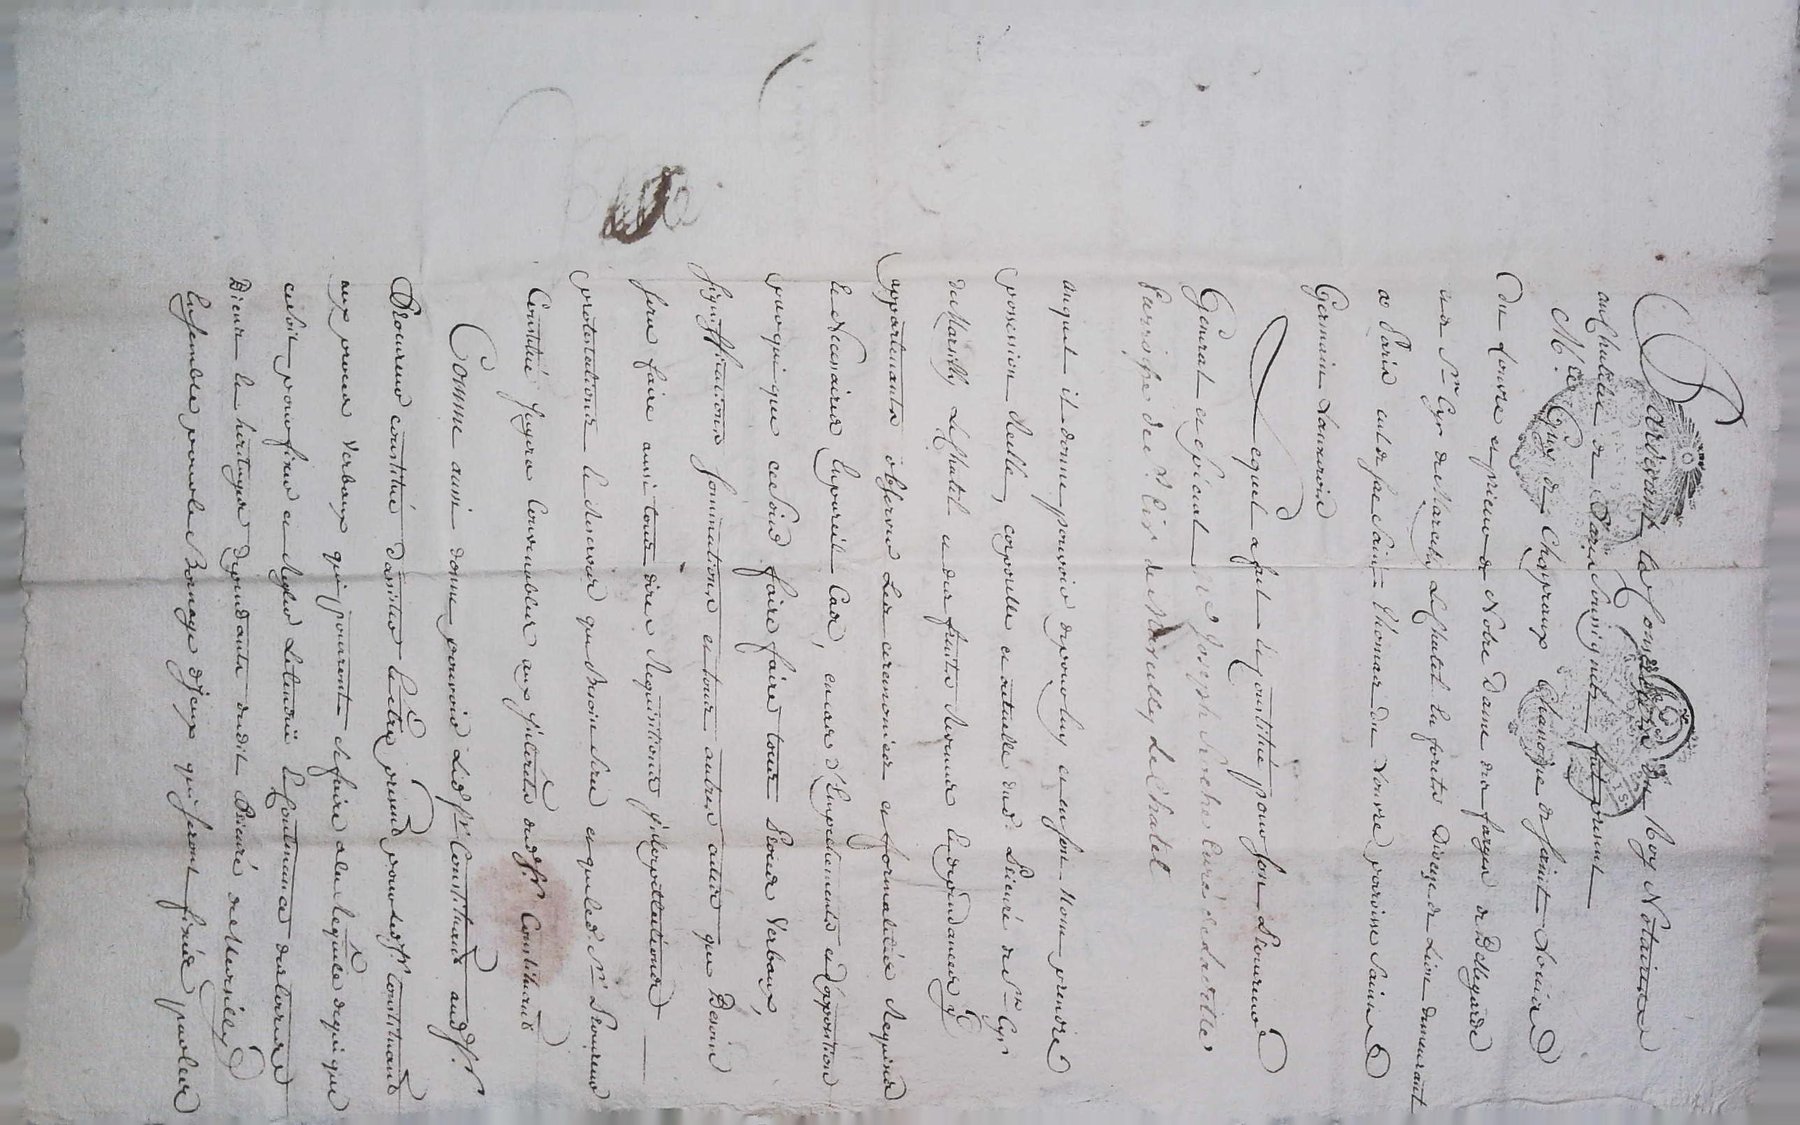 Pardevant les Conseillers du Roy Notaires
au Chatelet de Paris soussignés fut present
M.re Guy de Chapeaux Chanoine de Saint Louis
du Louvre et prieur de Notre Dame de
et de St Cyr de Marcilly Le Chatel en forets Diocese de Lion demeurant
a Paris rue de Saint Thomas du Louvre paroisse Saint
Germain Lauxerois
Lequel a fait et constitué pour son Procureur
General et special M.re Joseph Roche Curé de la ville
Parroisse de de Marcilly Le Chatel
auquel il donne pouvoir de pour luy et en son Nom prendre
possession Reelle, corporelle et actuelle dud. Prieuré de St Cyr
de Marcilly Le Chatel et des fruits Revenus Et dependances y
appartenants observer Les ceremonies et formalités Requises
et Necessaires En pareil Cas, en cas d'Empechements et dopposition
pour quoique ce soit faire faire tous Procès Verbaux,
significations sommations et tous autres actes que Besoin
sera faire aussi tous dire Requisitions Interpellations
protestations et Reserves que Besoin sera et que led. Sr Procureur
Constitué Jugera Convenables aux Interets dud Sr Constituant
Comme aussi donne pouvoir Led. Sr Constituant aud Sr
Procureur constitué d'assister et etre present pour led Sr Constituant
aux procès Verbaux qui pourront se faire a la Requete de qui que
ce soit pour fixer et Regler Letendüe et Contenance de
et les heritages dependants dudit Prieuré de Marcilly
Ensemble pour le Bornage d'Iceux qui seront fixés par les